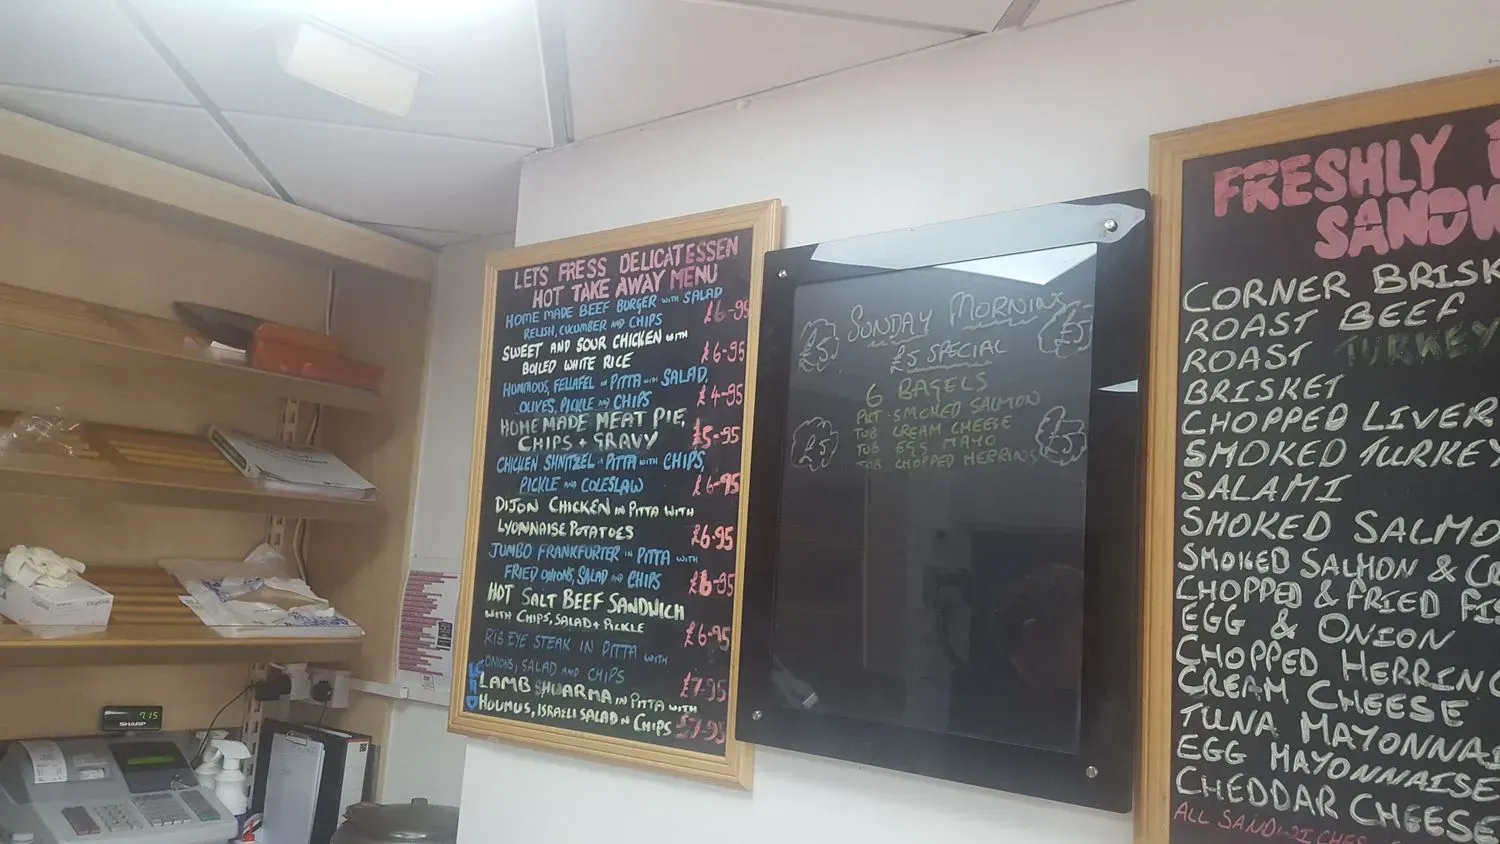 LETS FRESS DELICATESSEN
HOT TAKE AWAY MENU
HOME MADE BEEF BURGER WITH SALAD
RELISH, CUCUMBER AND CHIPS £6-95
SWEET AND SOUR CHICKEN WITH
BOILED WHITE RICE £6-95
HUMMOUS, FELLAFEL IN PITTA WITH SALAD,
OLIVES, PICKLE AND CHIPS £4-95
HOME MADE MEAT PIE,
CHIPS + GRAVY £5-95
CHICKEN SHNITZEL IN PITTA WITH CHIPS,
PICKLE AND COLESLAW £6-95
DIJON CHICKEN IN PITTA WITH
LYONNAISE POTATOES £6-95
JUMBO FRANKFURTER IN PITTA WITH
FRIED ONIONS, SALAD AND CHIPS £6-95
HOT SALT BEEF SANDWICH
WITH CHIPS, SALAD + PICKLE £6-95
RIB EYE STEAK IN PITTA WITH
ONIONS, SALAD AND CHIPS £7-95
LAMB SHUARMA IN PITTA WITH
HOUMUS, ISRAELI SALAD N CHIPS £7-95
SUNDAY MORNING
£5 SPECIAL
£5 £5
6 BAGELS
PKT SMOKED SALMON
TUB CREAM CHEESE
TUB EGG MAYO
TUB CHOPPED HERRING
£5 £5
FRESHLY
SANDW
CORNER BRISK
ROAST BEEF
ROAST TURKEY
BRISKET
CHOPPED LIVER
SMOKED TURKEY
SALAMI
SMOKED SALMO
SMOKED SALMON & CR
CHOPPED & FRIED FIS
EGG & ONION
CHOPPED HERRING
CREAM CHEESE
TUNA MAYONNAI
EGG MAYONNAISE
CHEDDAR CHEESE
ALL SANDWICHES
SHARP
7.15